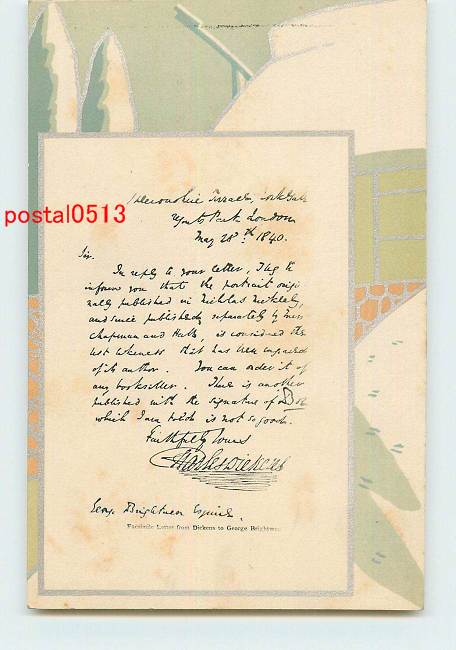 1 Devonshire Terrace, York Gate
Park London
May 28th 1840.
postal0513
Sir.
In reply to your letter, I beg to
inform you that the portrait origi
nally published in Nicholas Nickleby,
and since published separately by Mess
Chapman and Hall, is considered the
best likeness that has been
of its author. You can order it of
any bookseller. There is another
published with the signature of
which I am told is not so good.
Faithfully Yours
Charles Dickens
George Brightwen Esquire.
Facsimile Letter from Dickens to George Brightwen